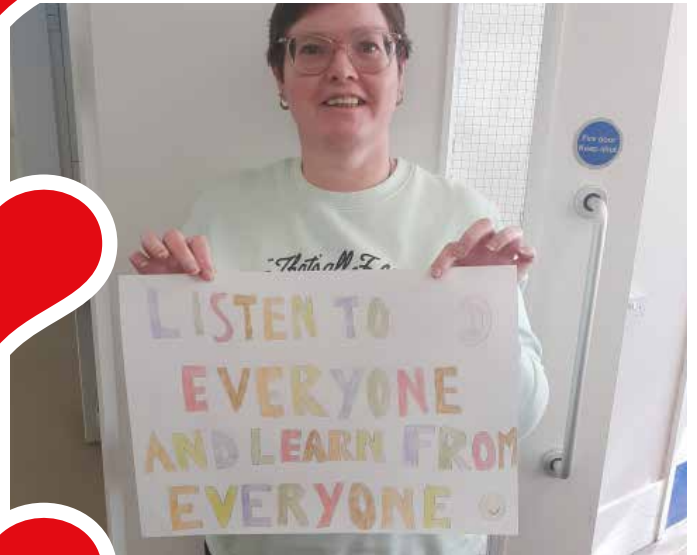 Fire door
Keep shut
"That's all Fo
LISTEN TO
EVERYONE
AND LEARN FROM
EVERYONE